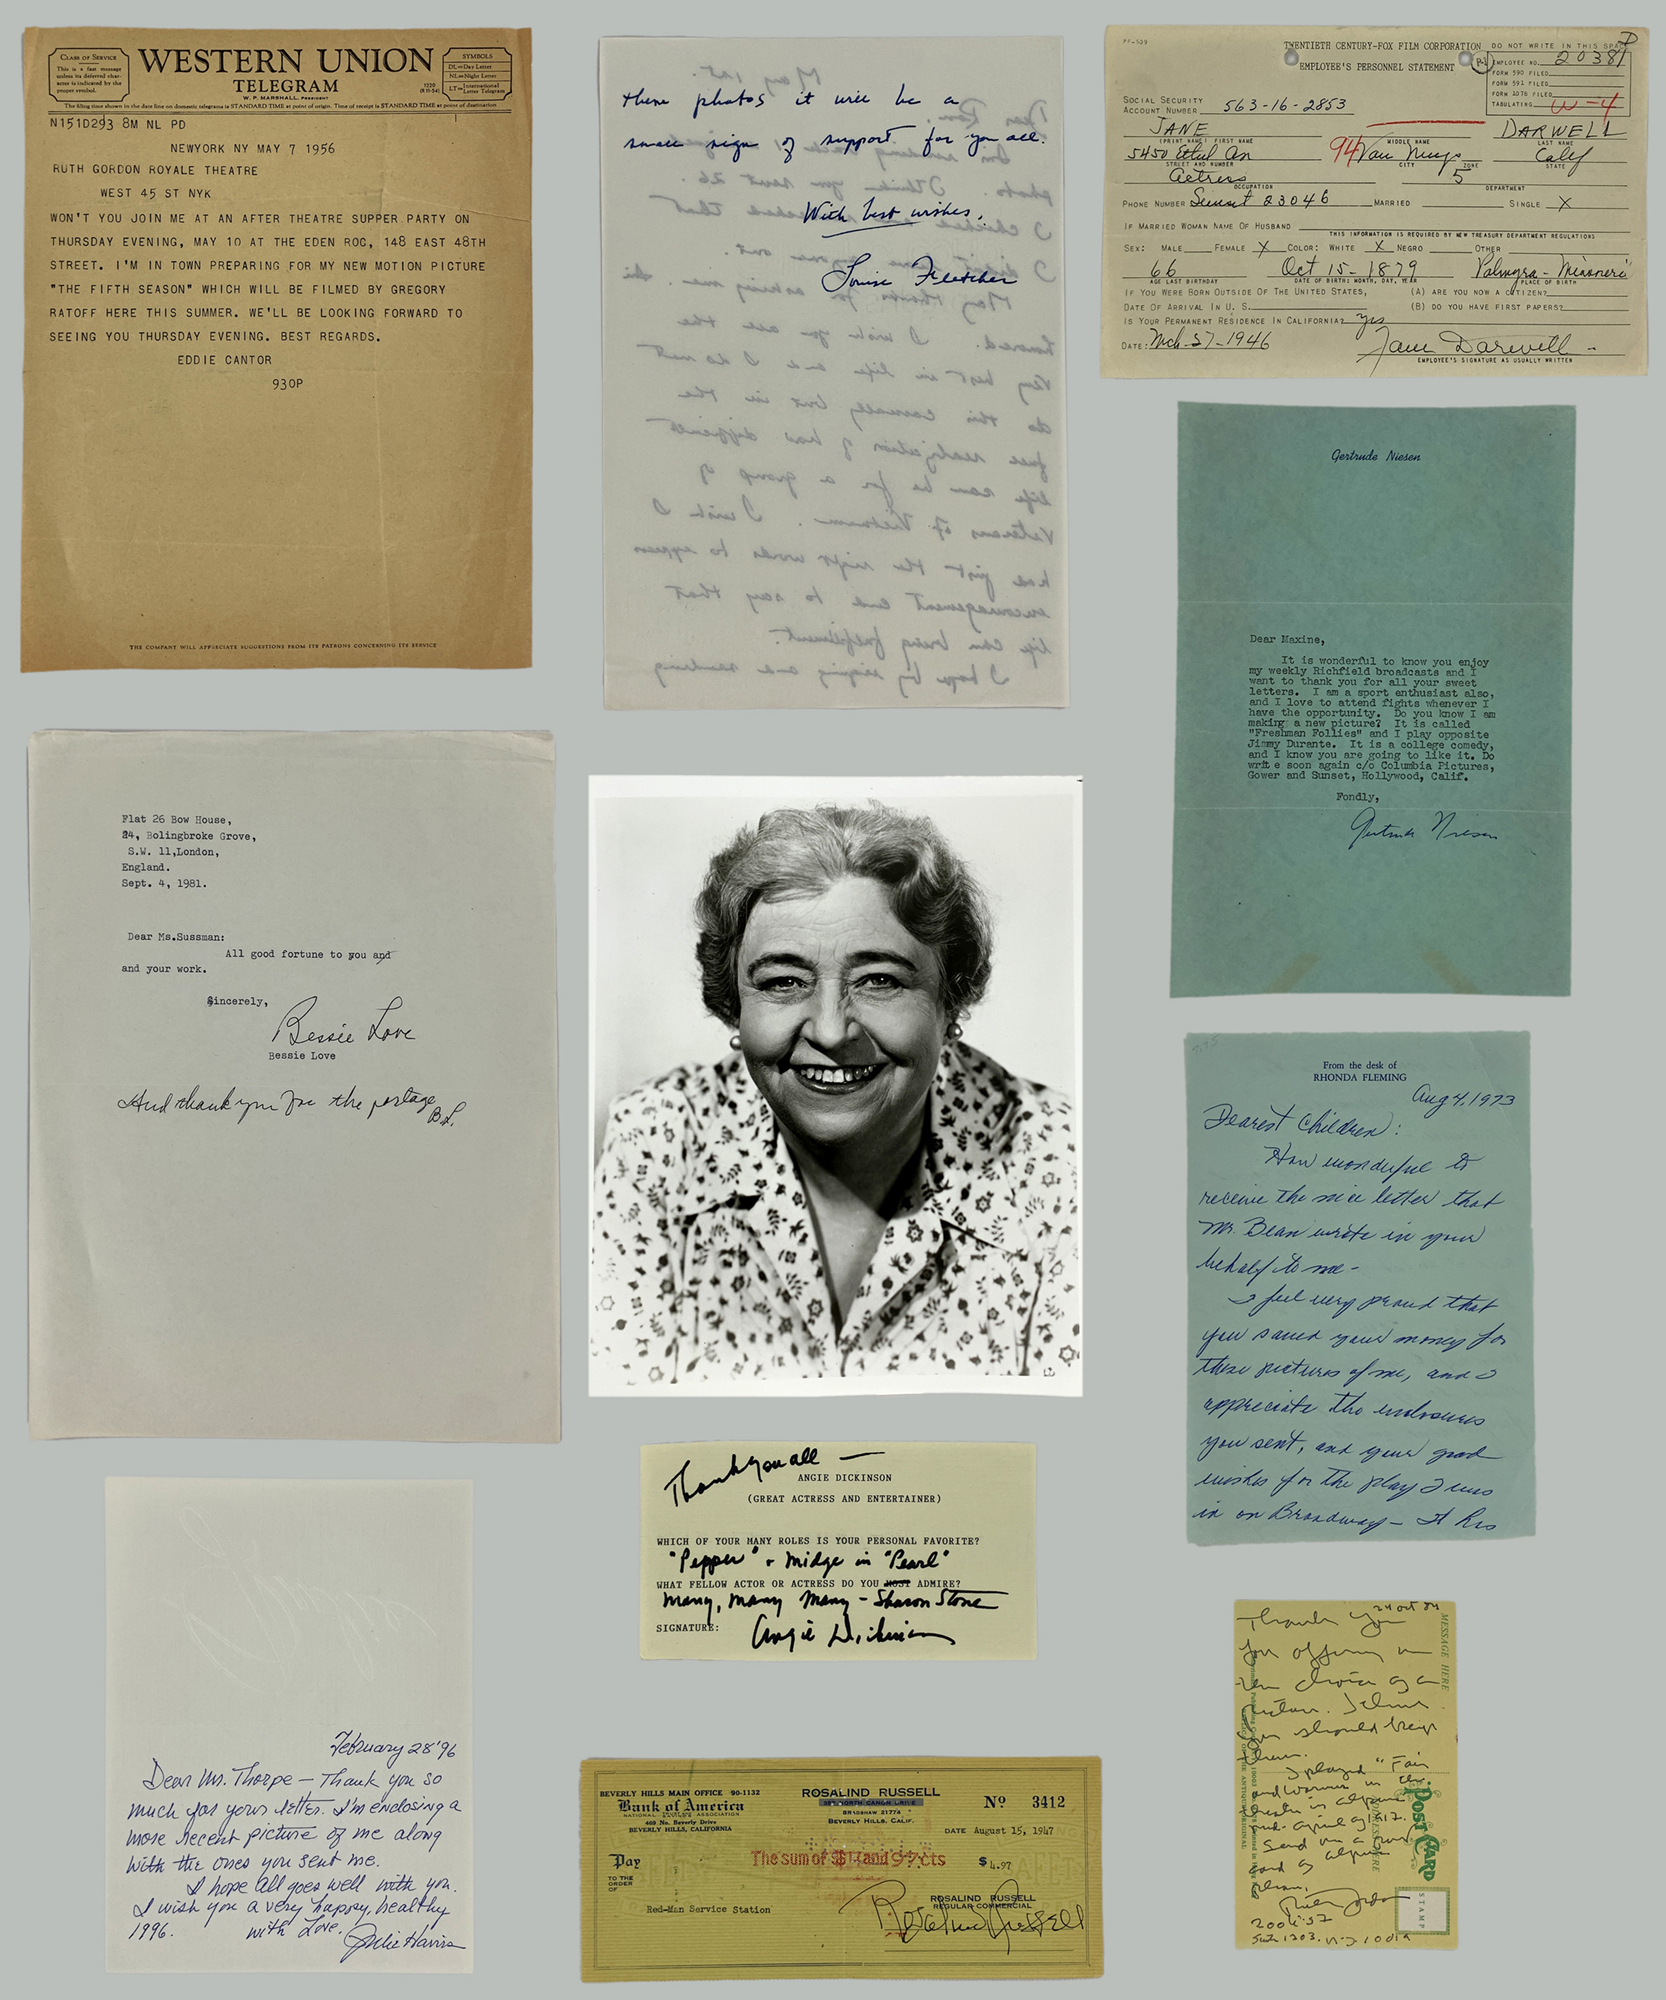 CLASS OF SERVICE
This is a fast message
unless its deferred char-
acter is indicated by the
proper symbol.
WESTERN UNION
TELEGRAM
W. P. MARSHALL, PRESIDENT
1220
(R 11-54)
SYMBOLS
DL=Day Letter
NL=Night Letter
LT=International Letter Telegram
The filing time shown in the date line on domestic telegrams is STANDARD TIME at point of origin. Time of receipt is STANDARD TIME at point of destination
N151D293 8M NL PD
NEWYORK NY MAY 7 1956
RUTH GORDON ROYALE THEATRE
WEST 45 ST NYK
WON'T YOU JOIN ME AT AN AFTER THEATRE SUPPER PARTY ON
THURSDAY EVENING, MAY 10 AT THE EDEN ROC, 148 EAST 48TH
STREET. I'M IN TOWN PREPARING FOR MY NEW MOTION PICTURE
"THE FIFTH SEASON" WHICH WILL BE FILMED BY GREGORY
RATOFF HERE THIS SUMMER. WE'LL BE LOOKING FORWARD TO
SEEING YOU THURSDAY EVENING. BEST REGARDS.
EDDIE CANTOR
930P
THE COMPANY WILL APPRECIATE SUGGESTIONS FROM ITS PATRONS CONCERNING ITS SERVICE
these photos it will be a
small sign of support for you all.
With best wishes,
Louise Fletcher
TWENTIETH CENTURY-FOX FILM CORPORATION
EMPLOYEE'S PERSONNEL STATEMENT
DO NOT WRITE IN THIS SPACE
EMPLOYEE NO. 20381
FORM 590 FILED
FORM 591 FILED
FORM 1078 FILED
TABULATING W-4
SOCIAL SECURITY
ACCOUNT NUMBER 563-16-2853
JANE DARWELL
(PRINT NAME) FIRST NAME MIDDLE NAME LAST NAME
5450 Ethel Av 94 Van Nuys Calif
STREET AND NUMBER CITY ZONE STATE
Actress 5
OCCUPATION DEPARTMENT
PHONE NUMBER Sunset 23046 MARRIED SINGLE X
IF MARRIED WOMAN NAME OF HUSBAND
THIS INFORMATION IS REQUIRED BY NEW TREASURY DEPARTMENT REGULATIONS
SEX: MALE FEMALE X COLOR: WHITE X NEGRO OTHER
66 Oct 15-1879 Palmyra - Missouri
AGE LAST BIRTHDAY DATE OF BIRTH: MONTH, DAY, YEAR PLACE OF BIRTH
IF YOU WERE BORN OUTSIDE OF THE UNITED STATES, (A) ARE YOU NOW A CITIZEN?
DATE OF ARRIVAL IN U. S. (B) DO YOU HAVE FIRST PAPERS?
IS YOUR PERMANENT RESIDENCE IN CALIFORNIA? Yes
DATE: Mch-27-1946 Jane Darwell
EMPLOYEE'S SIGNATURE AS USUALLY WRITTEN
Gertrude Niesen
Dear Maxine,
It is wonderful to know you enjoy
my weekly Richfield broadcasts and I
want to thank you for all your sweet
letters. I am a sport enthusiast also,
and I love to attend fights whenever I
have the opportunity. Do you know I am
making a new picture? It is called
"Freshman Follies" and I play opposite
Jimmy Durante. It is a college comedy,
and I know you are going to like it. Do
write soon again c/o Columbia Pictures,
Gower and Sunset, Hollywood, Calif.
Fondly,
Gertrude Niesen
Flat 26 Bow House,
24, Bolingbroke Grove,
S.W. 11,London,
England.
Sept. 4, 1981.
Dear Ms.Sussman:
All good fortune to you and
and your work.
Sincerely,
Bessie Love
Bessie Love
And thank you for the postage
B.L.
From the desk of
RHONDA FLEMING
Aug 4, 1973
Dearest Children:
How wonderful to
receive the nice letter that
Mr. Bean wrote in your
behalf to me -
I feel very proud that
you saved your money for
these pictures of me, and I
appreciate the enclosures
you sent, and your good
wishes for the play I was
in on Broadway - It has
Thank you all —
ANGIE DICKINSON
(GREAT ACTRESS AND ENTERTAINER)
WHICH OF YOUR MANY ROLES IS YOUR PERSONAL FAVORITE?
"Pepper" + Midge in "Pearl"
WHAT FELLOW ACTOR OR ACTRESS DO YOU MOST ADMIRE?
many, many many - Sharon Stone
SIGNATURE: Angie Dickinson
February 28 '96
Dear Mr. Thorpe - Thank you so
much for your letter. I'm enclosing a
more recent picture of me along
with the ones you sent me.
I hope all goes well with you.
I wish you a very happy, healthy
1996. with Love,
Julie Harris
BEVERLY HILLS MAIN OFFICE 90-1132
Bank of America
NATIONAL TRUST AND SAVINGS ASSOCIATION
469 No. Beverly Drive
BEVERLY HILLS, CALIFORNIA
ROSALIND RUSSELL
BRADSHAW 21774
BEVERLY HILLS, CALIF.
No 3412
DATE August 15, 1947
Pay
TO THE
ORDER
OF
The sum of $4 and 97 cts
$ 4.97
Red-Man Service Station
ROSALIND RUSSELL
REGULAR COMMERCIAL
Rosalind Russell
24 Oct 84
Thank you
for offering me
the choice of a
picture.
you should keep
them.
I played "Fair
and Warmer" in the
of 1917.
Send me a
MESSAGE HERE
POST CARD
ADDRESS HERE
STAMP
200 W 57
Suite 1203. N.Y. 10019